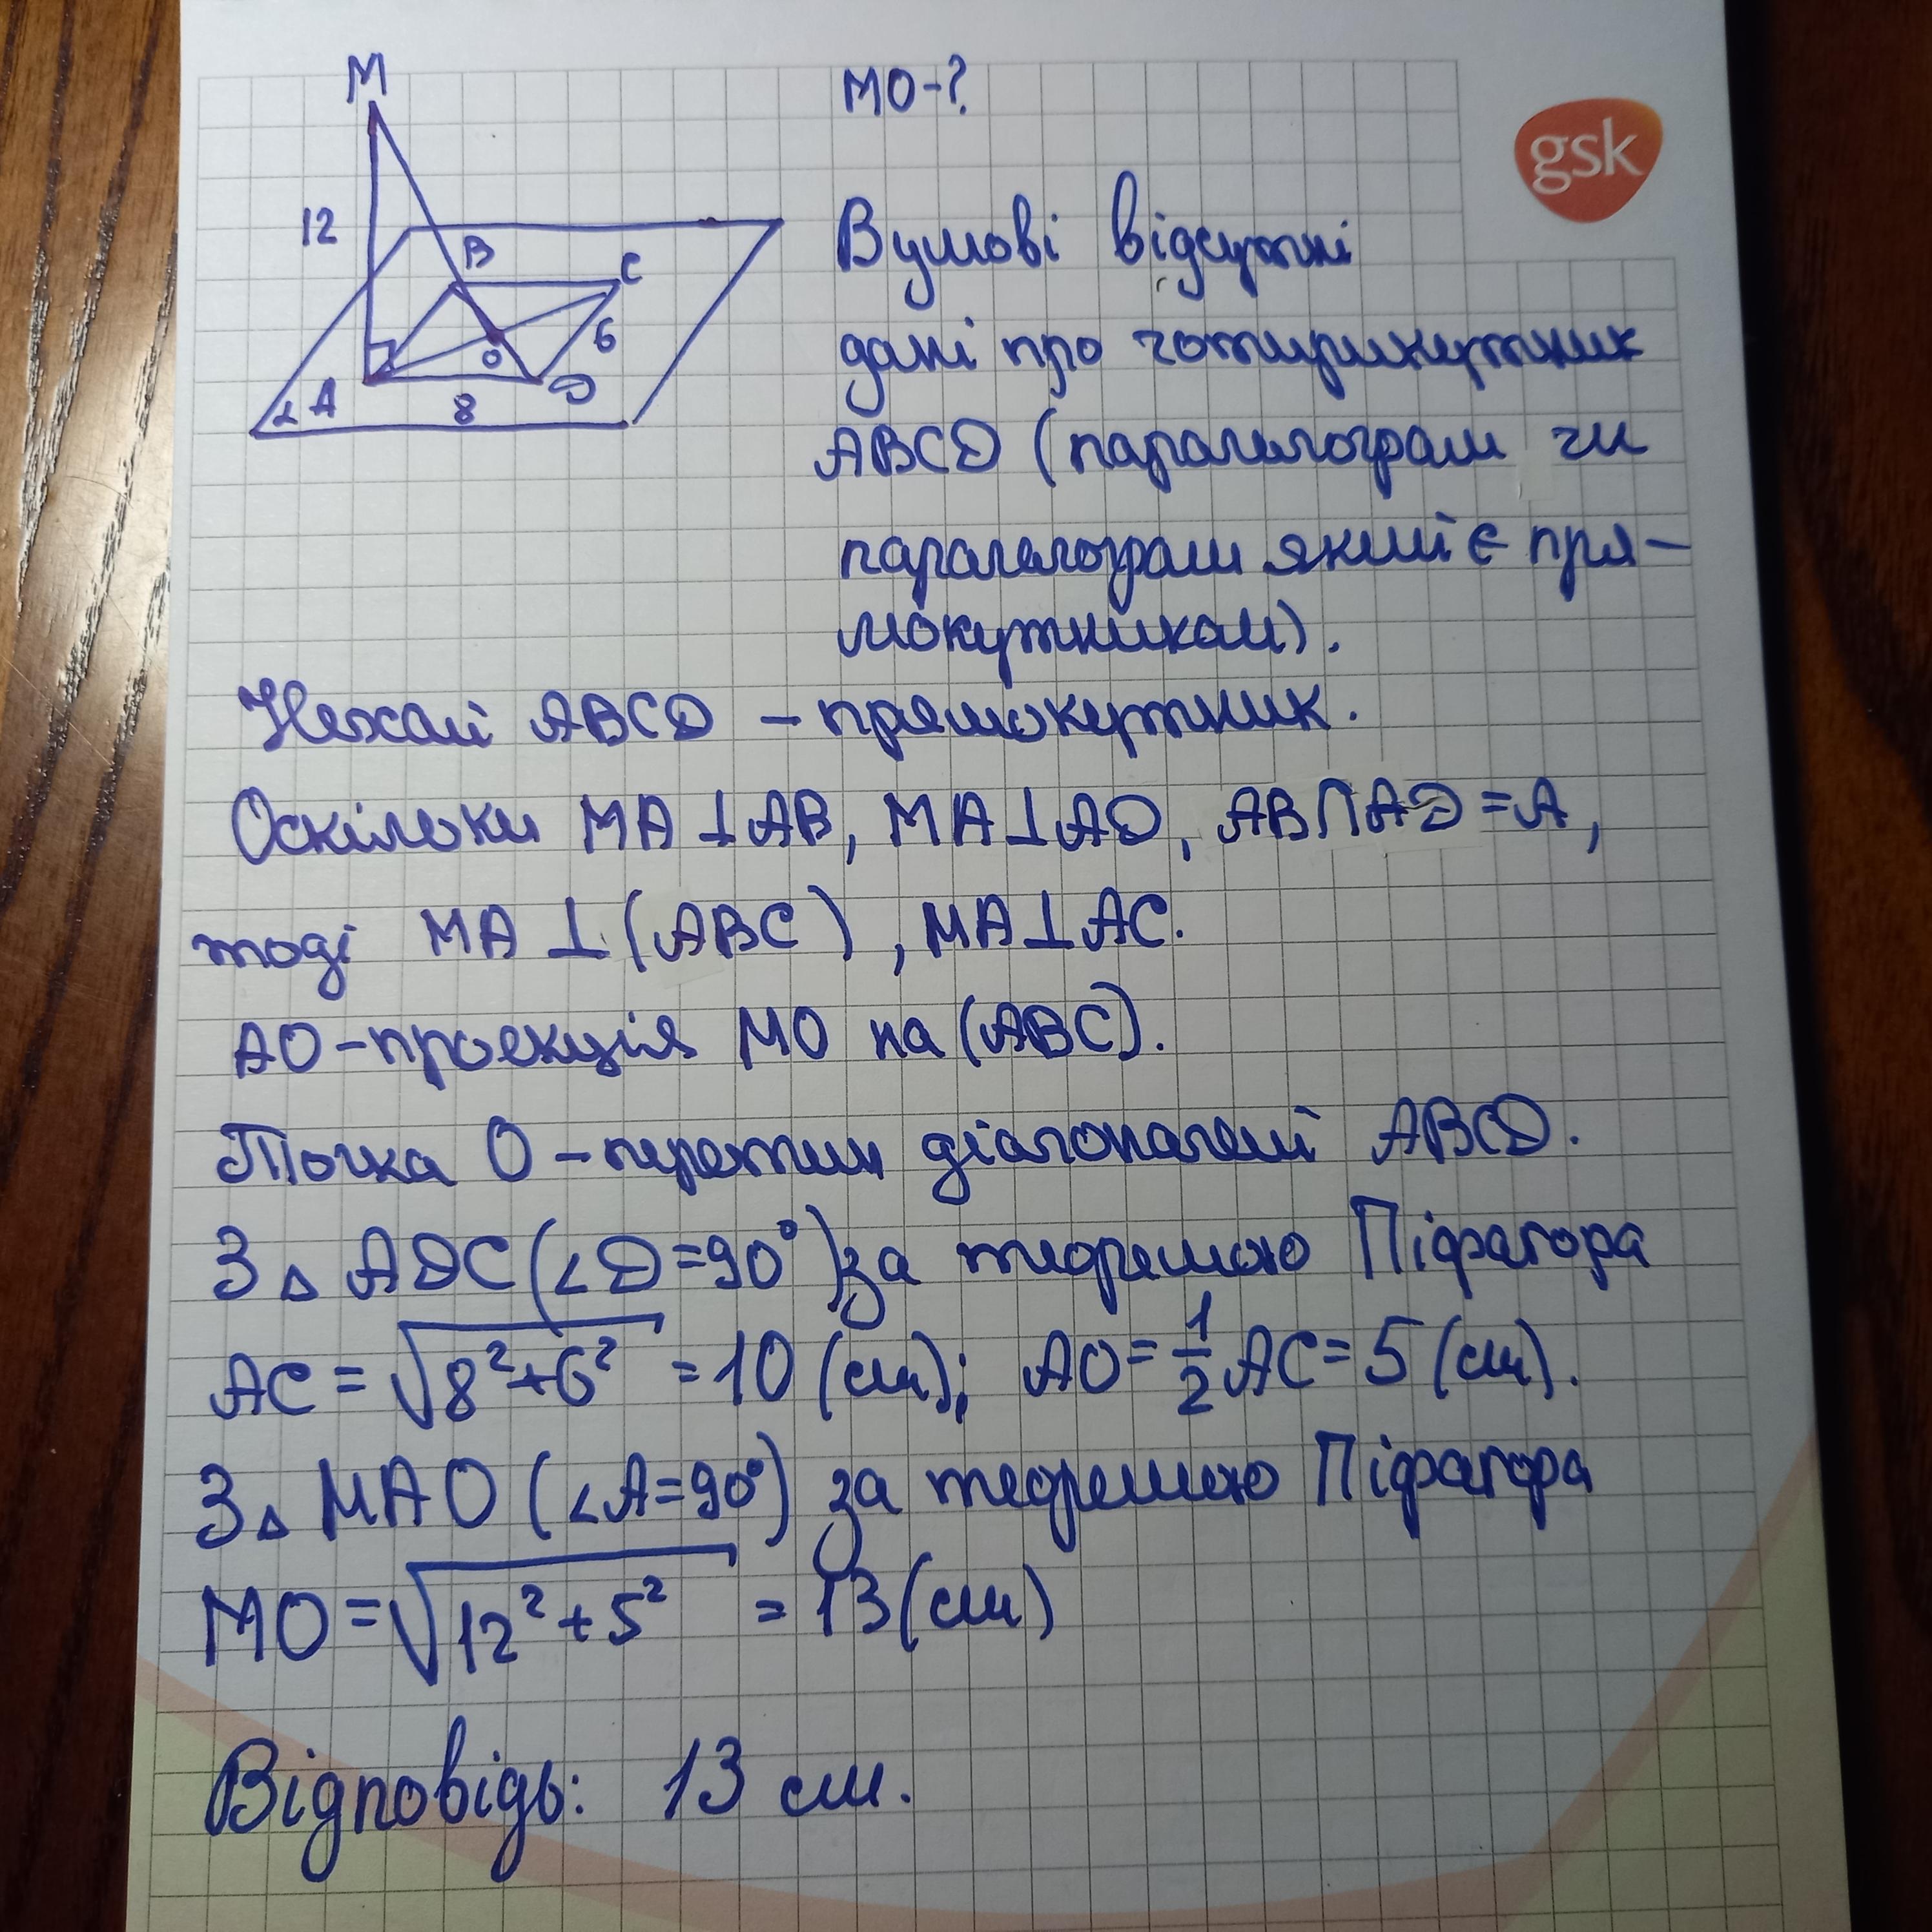 M
MO-?
gsk
12
B
C
6
O
α A
8
D
В умові відсутні
дані про чотирикутник
ABCD (паралелограм чи
паралелограм який є пря-
мокутником).
Нехай ABCD - прямокутник.
Оскільки MA⊥AB, MA⊥AD, AB∩AD=A,
тоді MA⊥(ABC), MA⊥AC.
AO-проекція MO на (ABC).
Точка O - перетин діагоналей ABCD.
З △ ADC (∠D=90°) за теоремою Піфагора
AC = √8²+6² = 10 (см); AO = 1/2 AC = 5 (см).
З △ MAO (∠A=90°) за теоремою Піфагора
MO = √12²+5² = 13 (см)
Відповідь: 13 см.